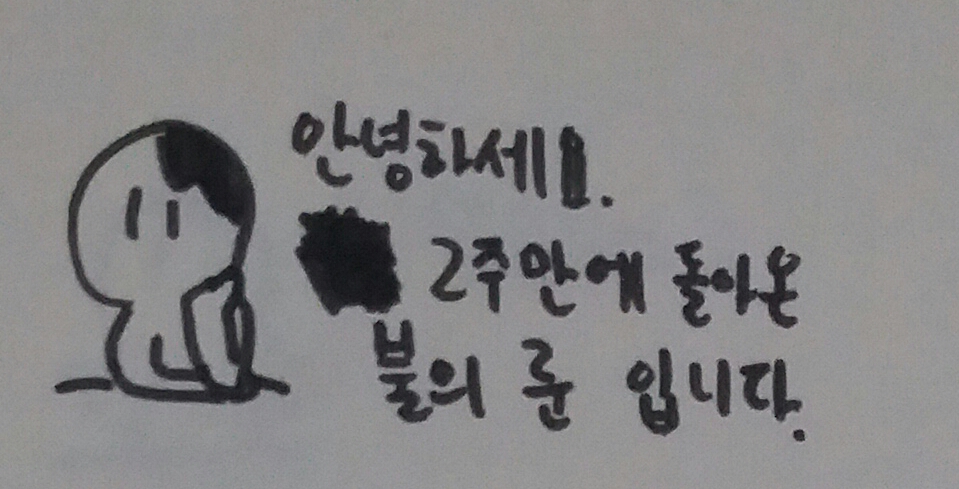 안녕하세.
2주만에 돌아온
불의 룬 입니다.